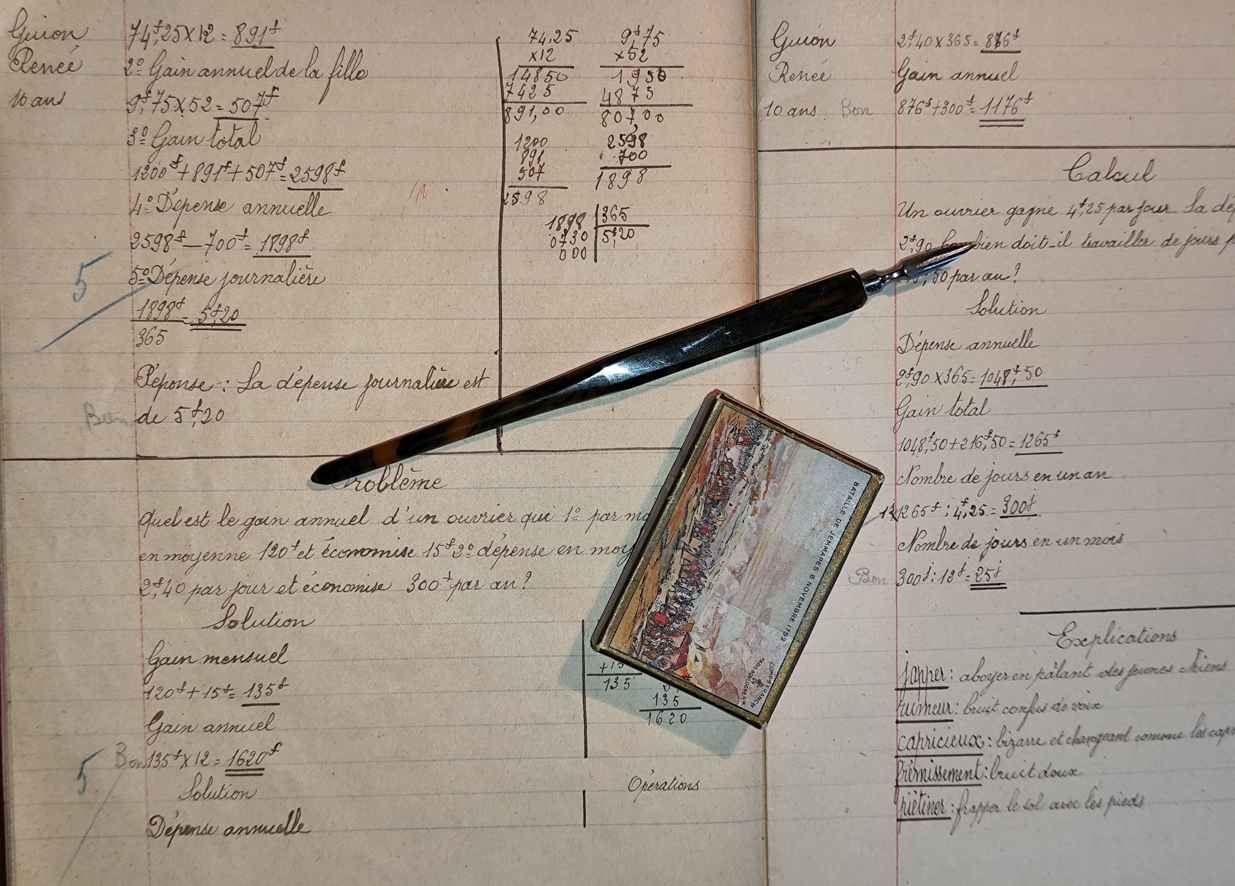 Guion
Renée
10 ans
74f,25 x 12 = 891f
2º Gain annuel de la fille
9f,75 x 52 = 507f
3º Gain total
1200f + 891f + 507f = 2598f
4º Dépense annuelle
2598f — 700f = 1898f
5
5º Dépense journalière
1898f = 5f,20
365
Réponse : La dépense journalière est
Bon de 5f,20
74,25
x12
14850
7425
891,00
9f,75
x52
1950
4875
1200
891
507
2598
2598
700
1898
1898 365
0730 5f20
000
Problème
Quel est le gain annuel d'un ouvrier qui 1º par
en moyenne 120f et économise 15f 2º dépense en
2f,40 par jour et économise 300f par an ?
Solution
Gain mensuel
120f + 15f = 135f
Gain annuel
5 Bon 135f x 12 = 1620f
Solution
Dépense annuelle
135
135
1620
Opérations
BATAILLE DE JEMMAPES 6 NOVEMBRE 1792
Guion
Renée
10 ans Bon
2f,40 x 365 = 876f
Gain annuel
876f + 300f = 1176f
Calcul
Un ouvrier gagne 4f,25 par jour La
2f,90 doit-il travailler de jours
,50 par an ?
Solution
Dépense annuelle
2f,90 x 365 = 1048f,50
Gain total
1048f,50 + 216f,50 = 1265f
Nombre de jours en un an
1265f : 4f,25 = 300j
Nombre de jours en un mois
Bon 300j : 12f = 25j
Explications
japper : aboyer en parlant des jeunes chiens
rumeur : bruit confus de voix
capricieux : bizarre et changeant comme les
frémissement : bruit doux
piétiner : frapper le sol avec les pieds